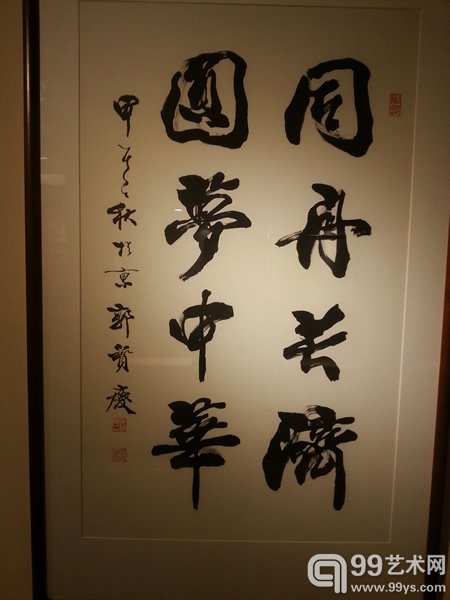 同舟共濟
圓夢中華
甲午之秋於京郭
99艺术网
www.99ys.com